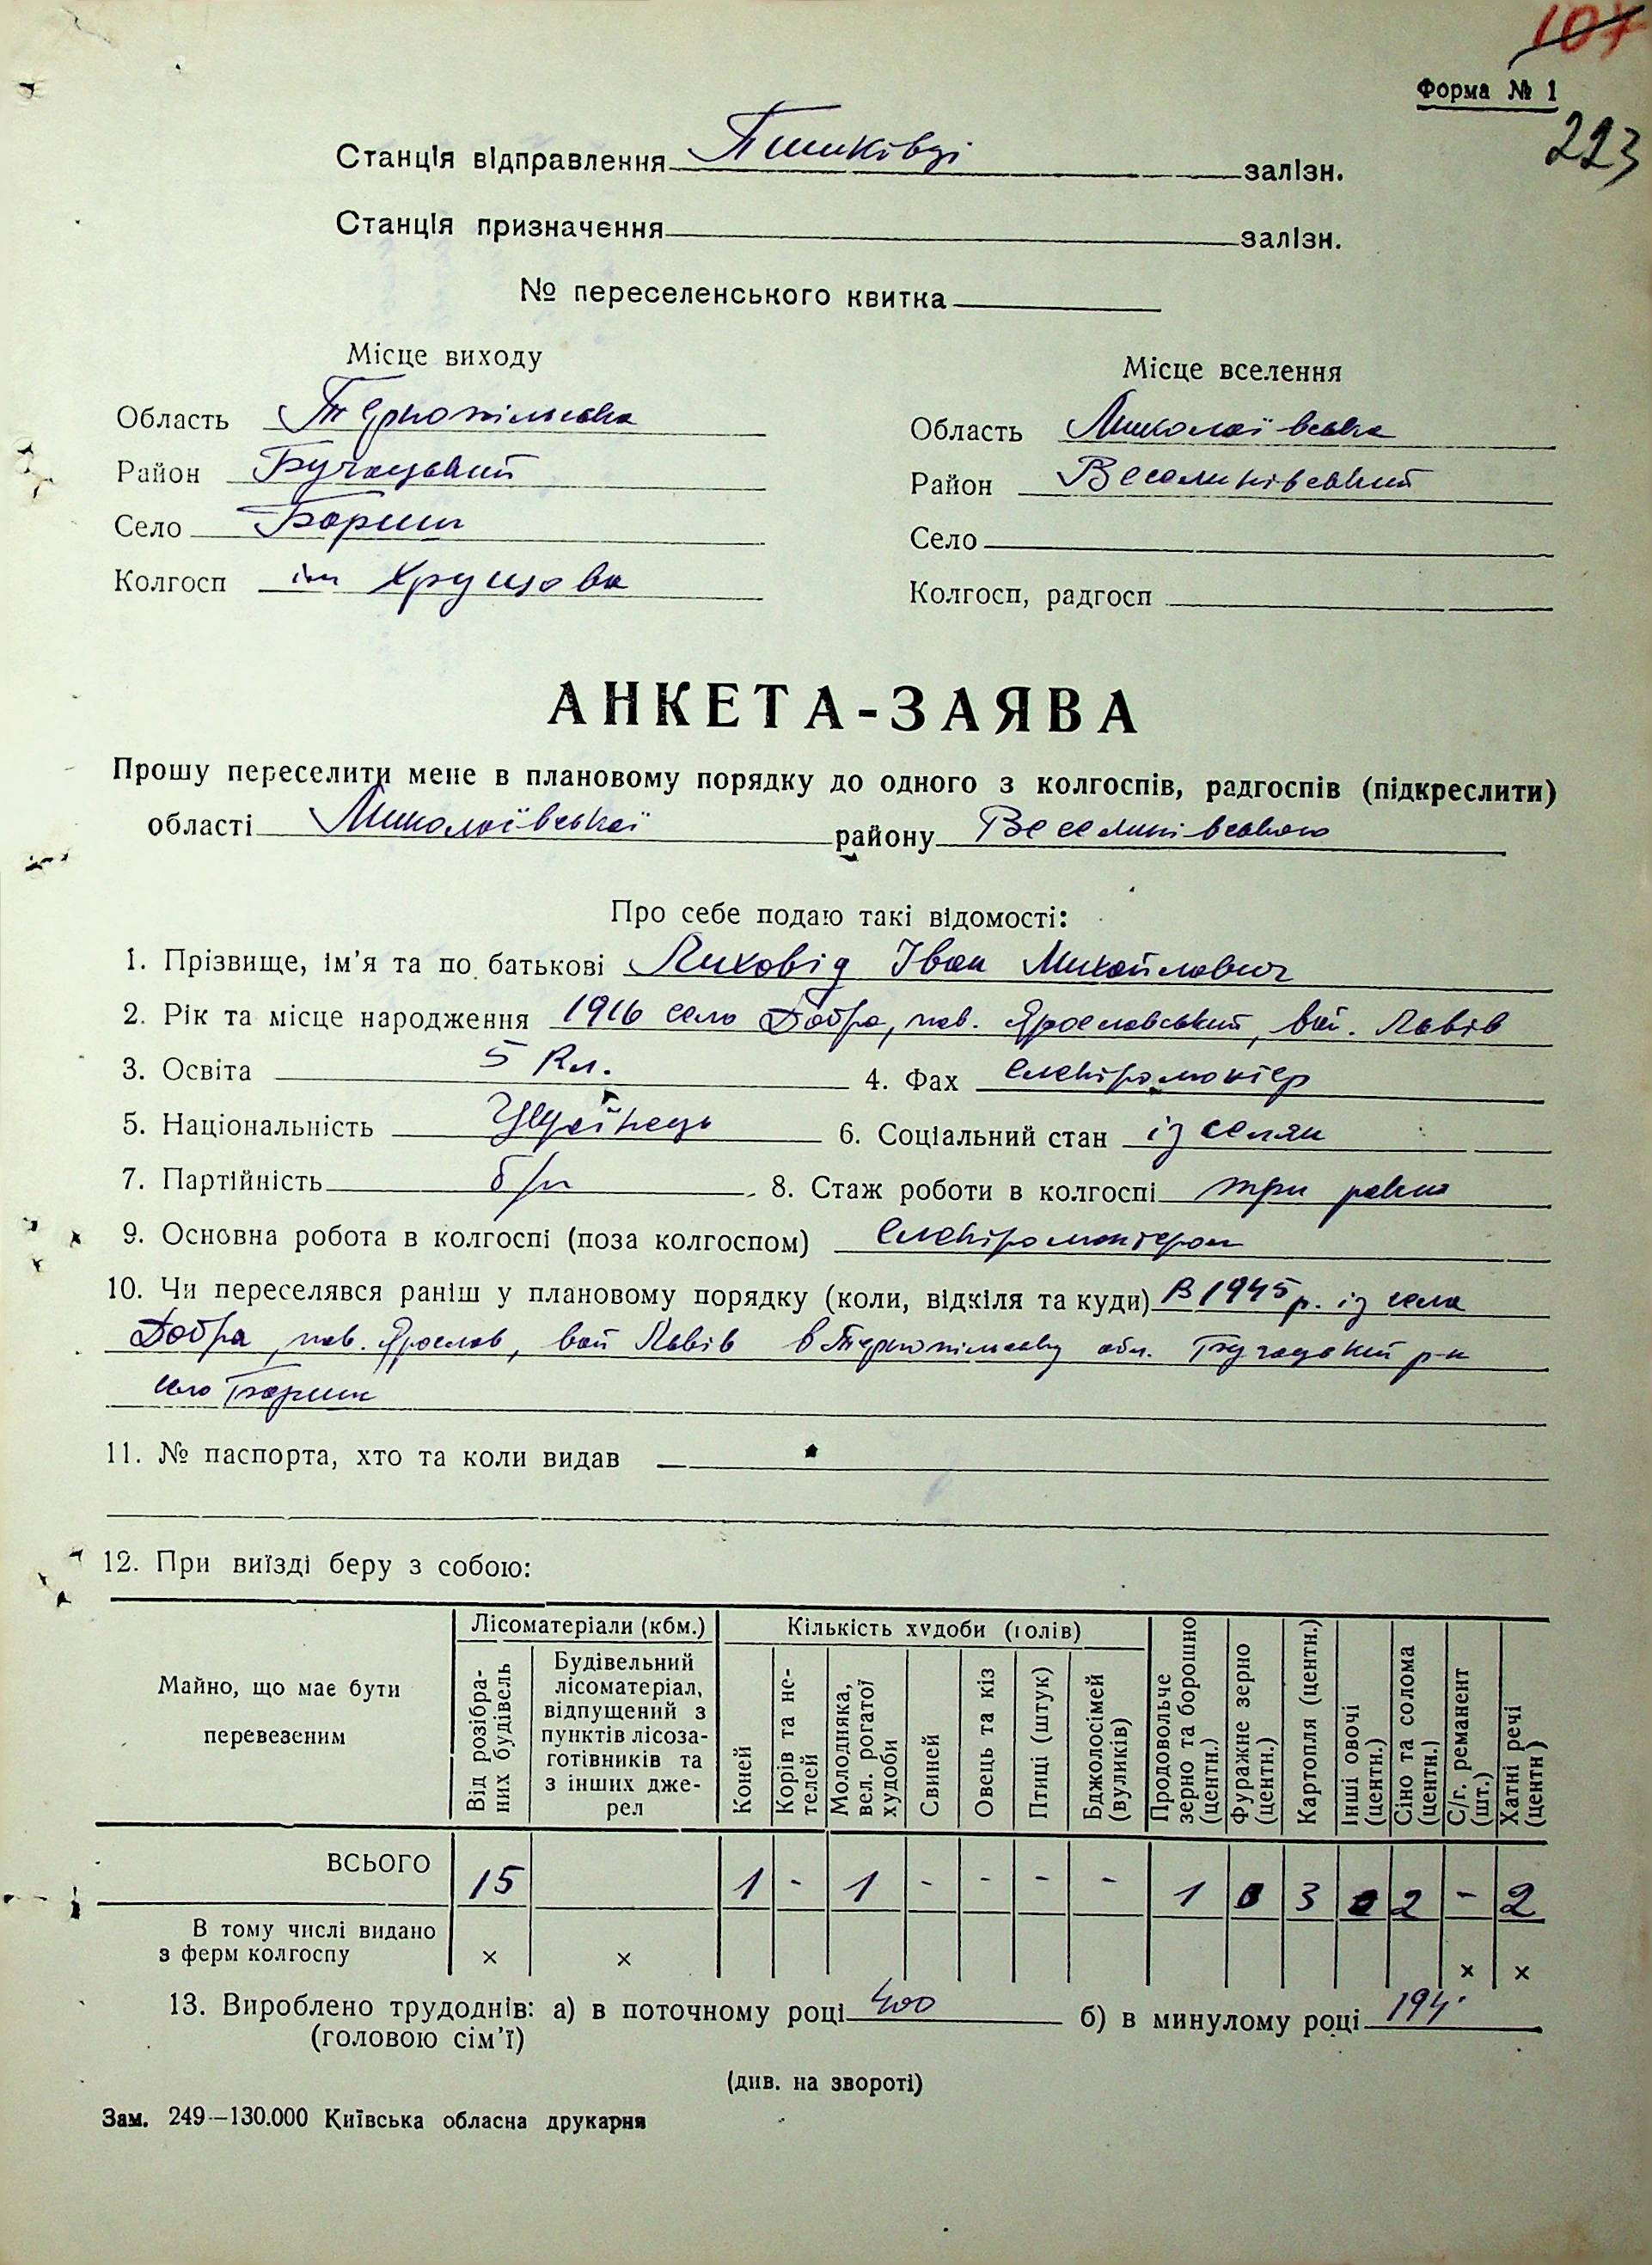 107
Форма № 1
223
Станція відправлення Пишківці залізн.
Станція призначення залізн.
№ переселенського квитка
Місце виходу
Місце вселення
Область Тернопільська
Область Миколаївська
Район Бучацький
Район Веселинівський
Село Бариш
Село
Колгосп ім Хрущова
Колгосп, радгосп
АНКЕТА-ЗАЯВА
Прошу переселити мене в плановому порядку до одного з колгоспів, радгоспів (підкреслити)
області Миколаївської району Веселинівського
Про себе подаю такі відомості:
1. Прізвище, ім'я та по батькові Лиховід Іван Михайлович
2. Рік та місце народження 1916 село Добра, пов. Ярославський, вой. Львів
3. Освіта 5 кл. 4. Фах електромонтер
5. Національність Українець 6. Соціальний стан із селян
7. Партійність б/п 8. Стаж роботи в колгоспі три роки
9. Основна робота в колгоспі (поза колгоспом) електромонтером
10. Чи переселявся раніш у плановому порядку (коли, відкіля та куди) В 1945 р. із села
Добра, пов. Ярослав, вой Львів в Тернопільську обл. Бучацький р-н
село Бариш
11. № паспорта, хто та коли видав —
12. При виїзді беру з собою:
Майно, що має бути перевезеним
Лісоматеріали (кбм.)
Кількість худоби (голів)
Від розібраних будівель
Будівельний лісоматеріал, відпущений з пунктів лісозаготівників та з інших джерел
Коней
Корів та нетелей
Молодняка, вел. рогатої худоби
Свиней
Овець та кіз
Птиці (штук)
Бджолосімей (вуликів)
Продовольче зерно та борошно (центн.)
Фуражне зерно (центн.)
Картопля (центн.)
Інші овочі (центн.)
Сіно та солома (центн.)
С/г. реманент (шт.)
Хатні речі (центн)
ВСЬОГО 15 1 - 1 - - - - 1 3 2 - 2
В тому числі видано
з ферм колгоспу × × × ×
13. Вироблено трудоднів: а) в поточному році 400 б) в минулому році 194
(головою сім'ї)
(див. на звороті)
Зам. 249—130.000 Київська обласна друкарня